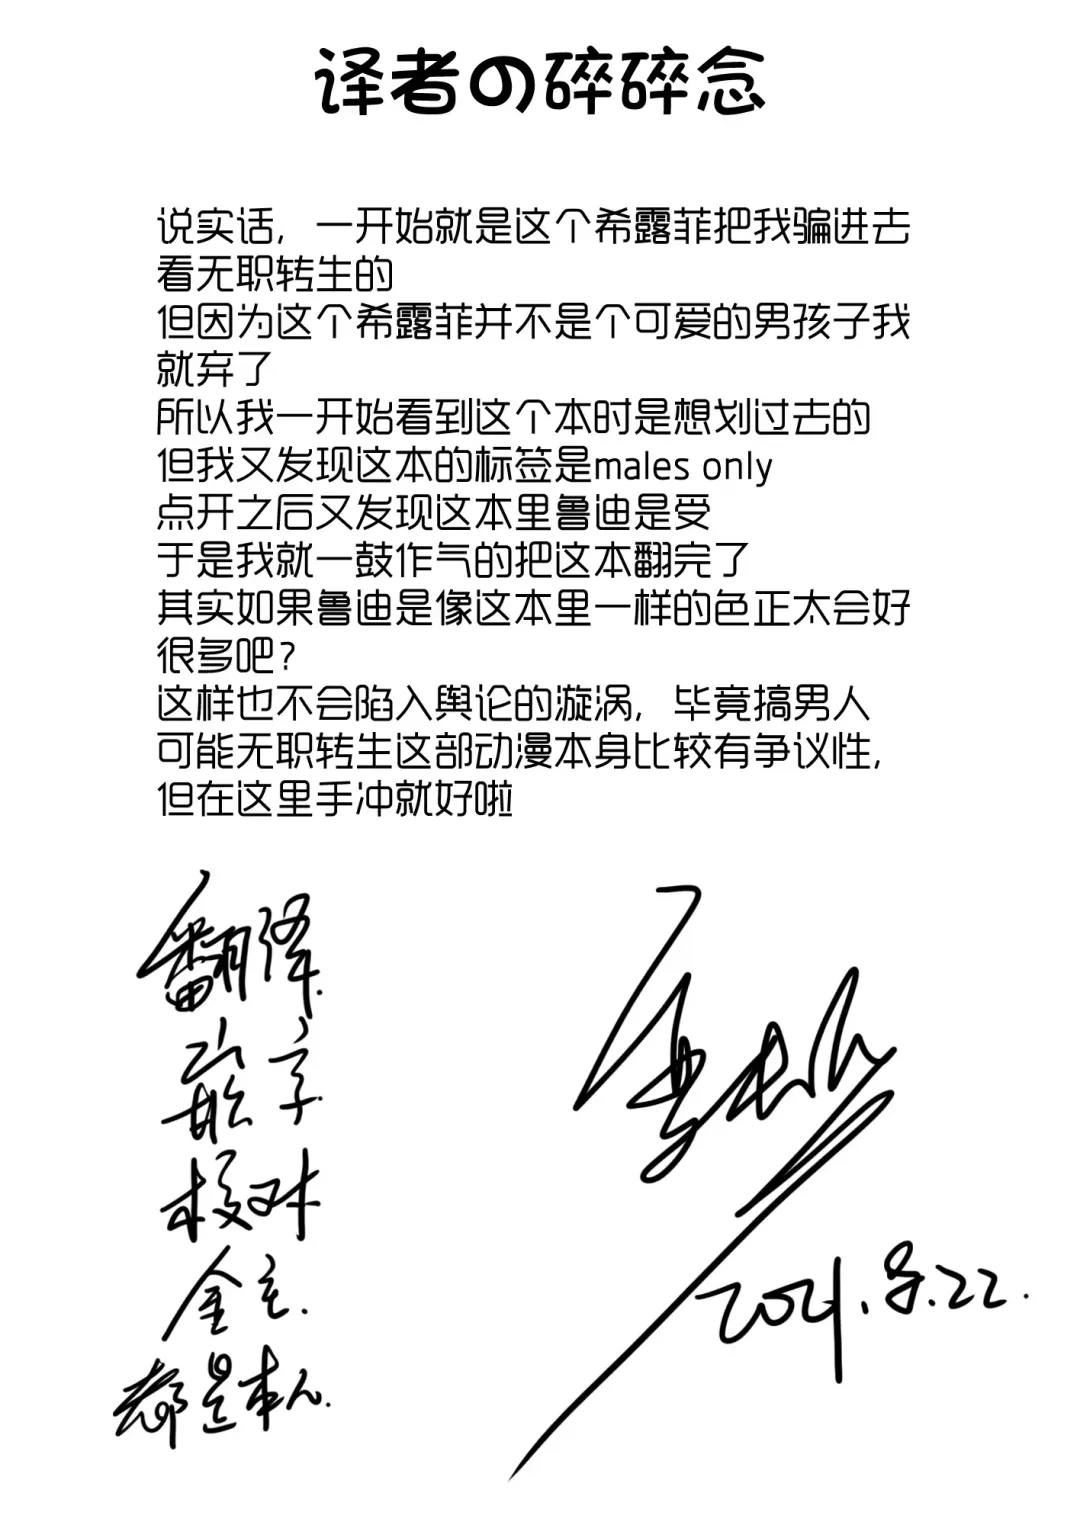 译者の碎碎念
说实话，一开始就是这个希露菲把我骗进去
看无职转生的
但因为这个希露菲并不是个可爱的男孩子我
就弃了
所以我一开始看到这个本时是想划过去的
但我又发现这本的标签是males only
点开之后又发现这本里鲁迪是受
于是我就一鼓作气的把这本翻完了
其实如果鲁迪是像这本里一样的色正太会好
很多吧？
这样也不会陷入舆论的漩涡，毕竟搞男人
可能无职转生这部动漫本身比较有争议性，
但在这里手冲就好啦
翻译.
嵌字.
校对
金主.
都是本人.
2021.8.22.